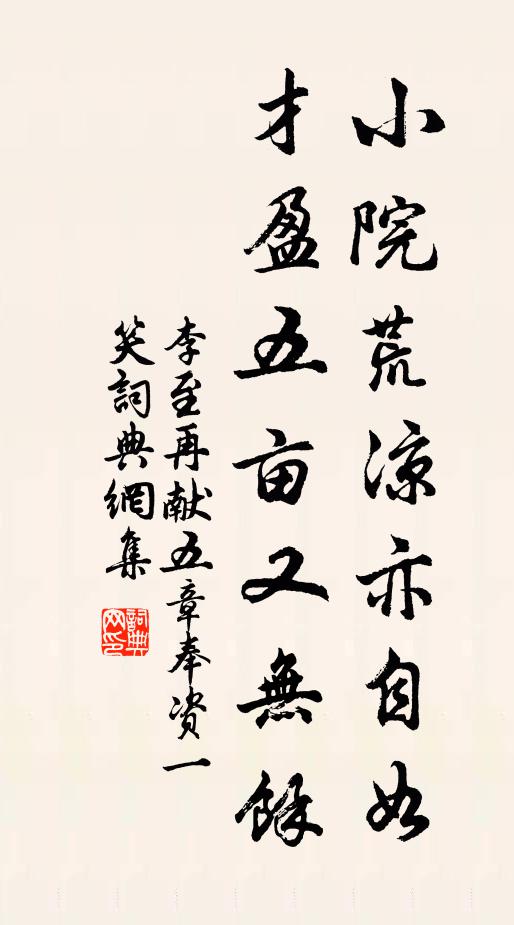 小院荒涼亦自如
才盈五亩又無餘
李至再献五章奉资一
笑詞典網集
詞典
网印